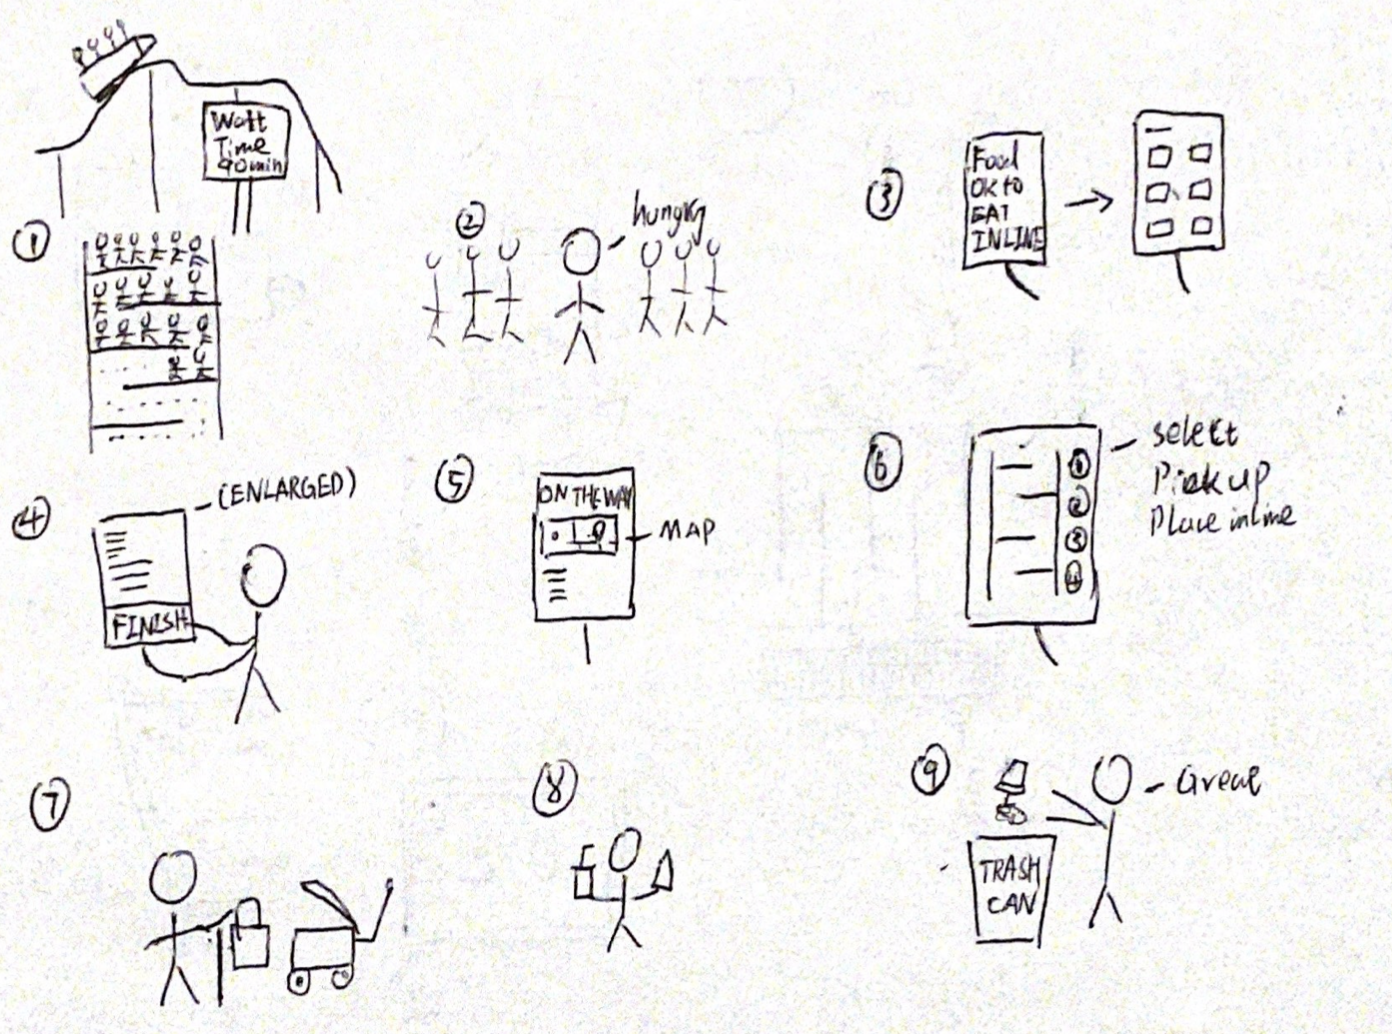 Wait
Time
90min
①
②
hungry
③
Food
OK to
EAT
INLINE
④
(ENLARGED)
FINISH
⑤
ON THE WAY
MAP
⑥
①
②
③
④
select
Pick up
Place inline
⑦
⑧
⑨
Great
TRASH
CAN